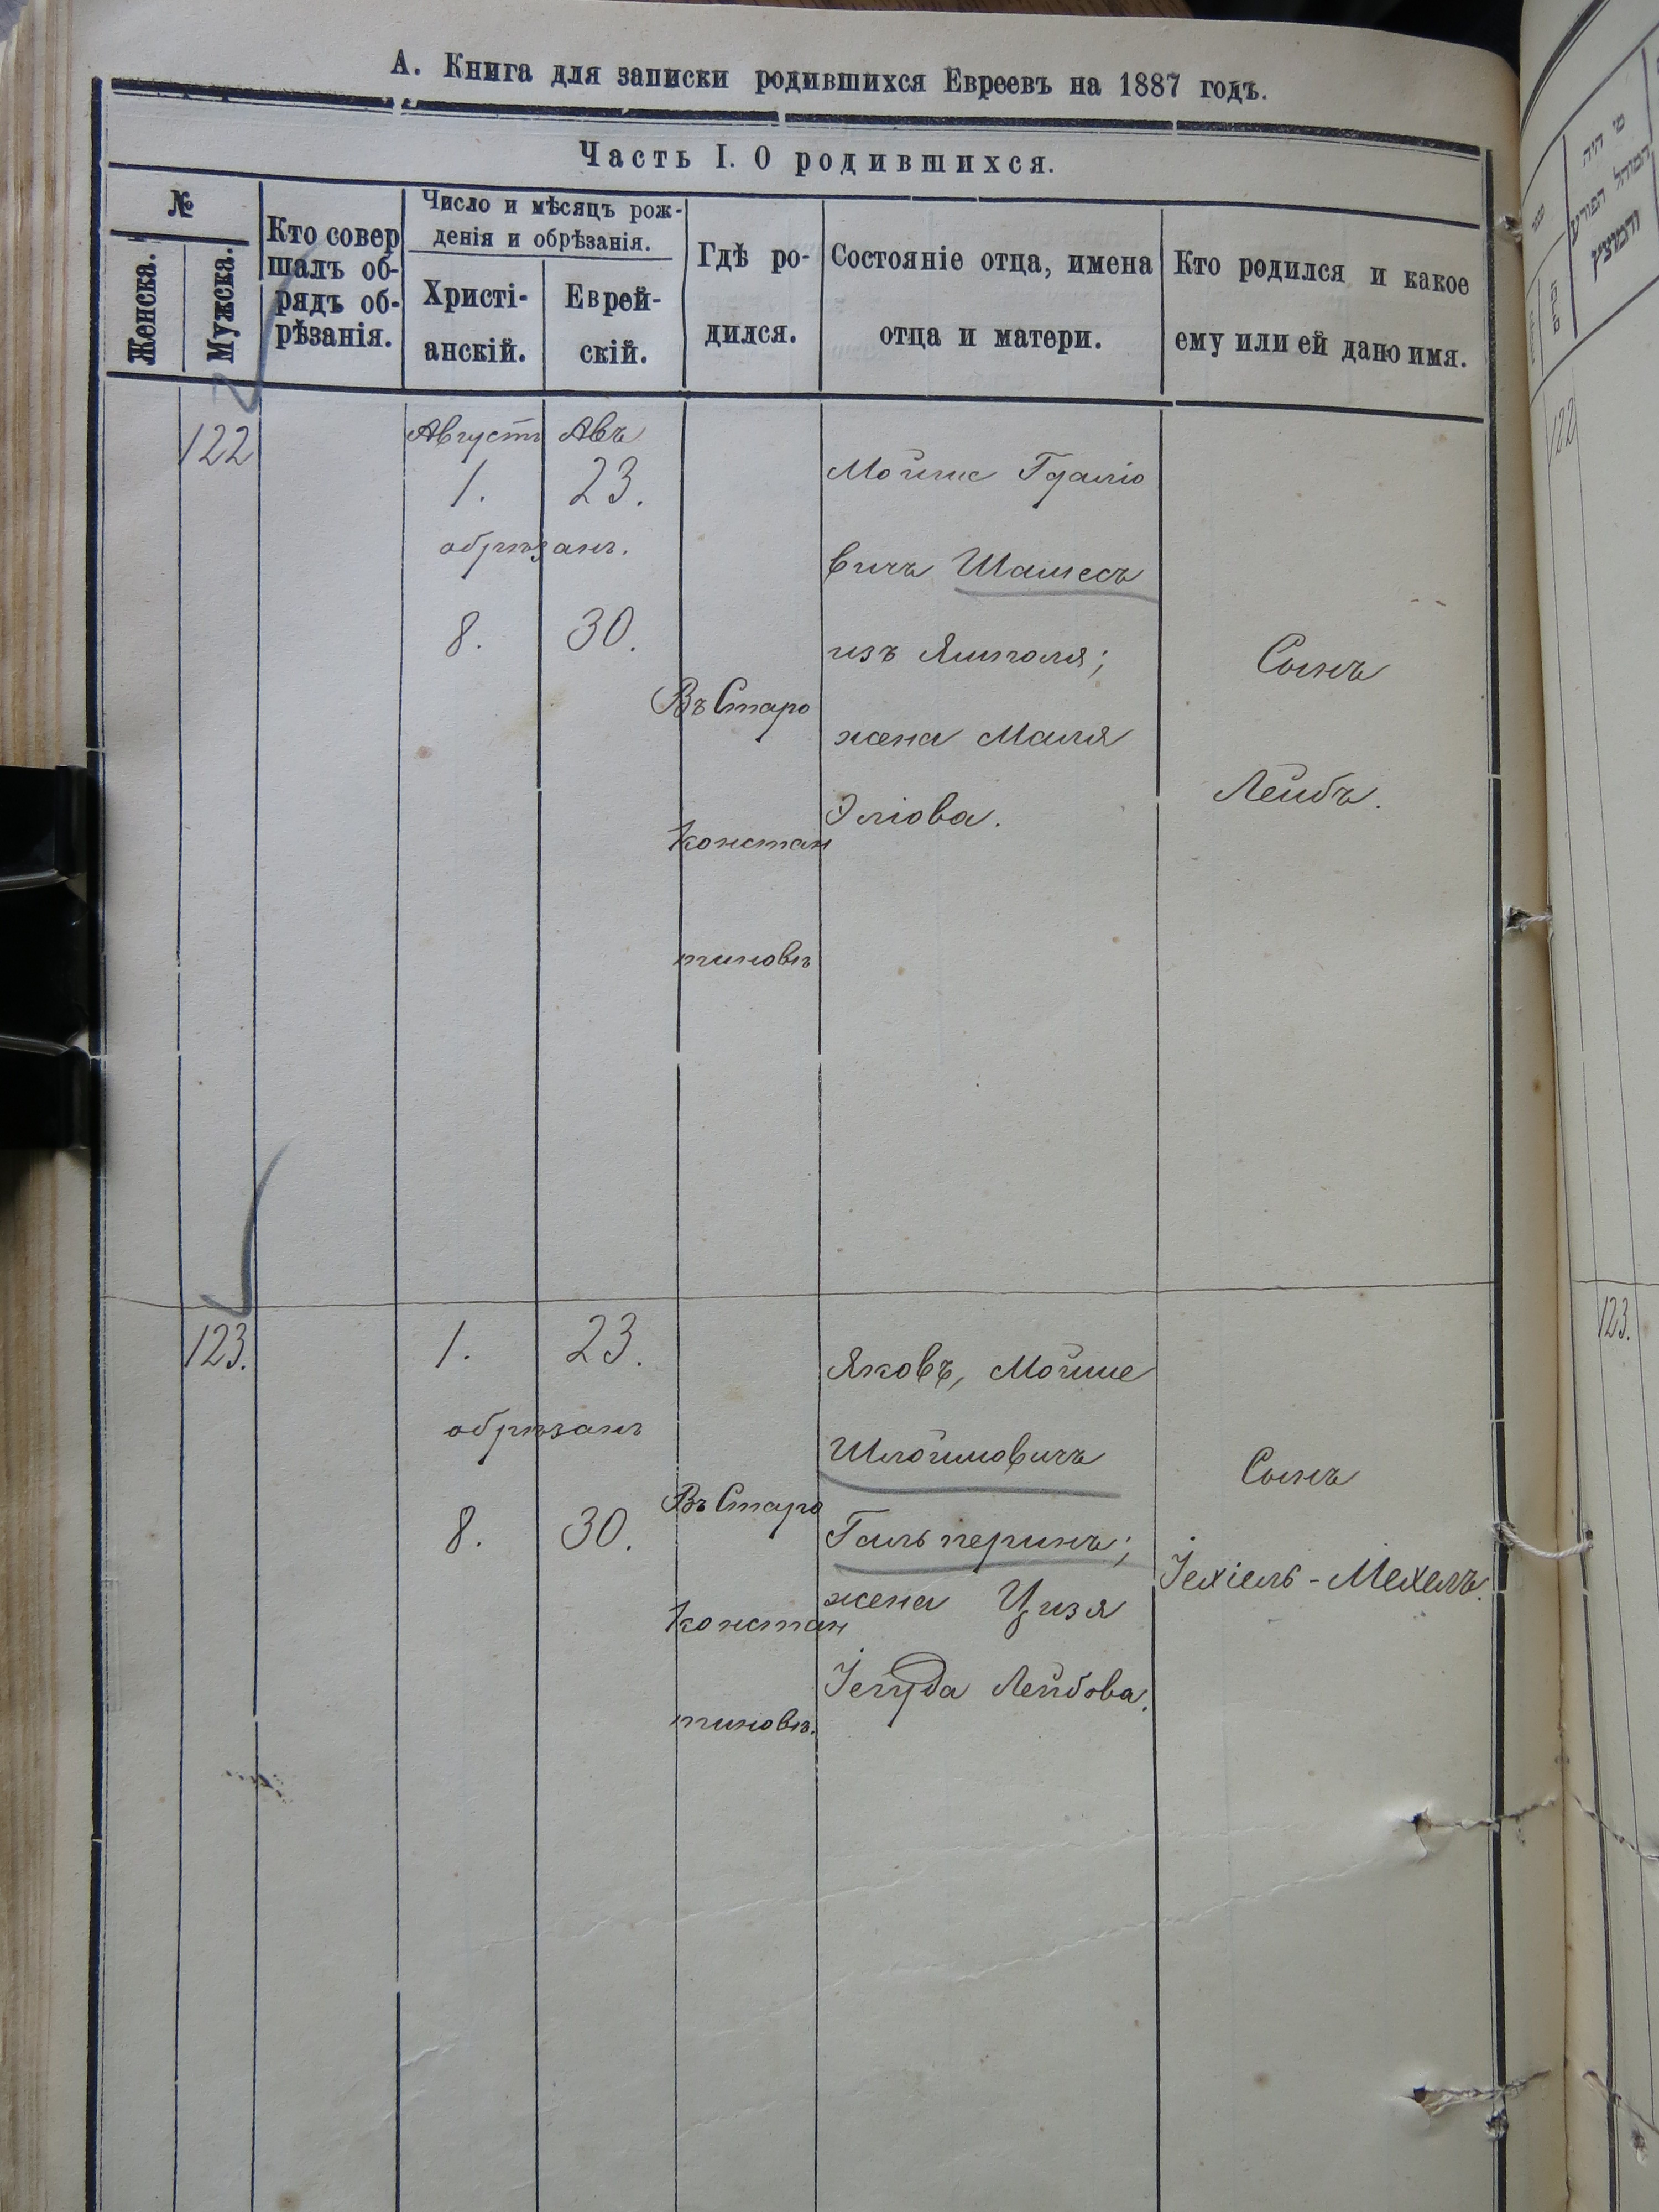 А. Книга для записки родившихся Евреевъ на 1887 годъ.
Часть I. О родившихся.
№
Женска.
Мужска.
Кто совер
шалъ об-
рядъ об-
рѣзанія.
Число и мѣсяцъ рож-
денія и обрѣзанія.
Христі-
анскій.
Еврей-
скій.
Гдѣ ро-
дился.
Состояніе отца, имена
отца и матери.
Кто родился и какое
ему или ей дано имя.
122
Августъ
1.
обрѣзанъ.
8.
Авъ
23.
30.
Въ Старо
констан
тиновѣ
Мойше Гдаліо
вичъ Шамесъ
изъ Ямполя;
жена Маля
Эліова.
Сынъ
Лейбъ.
123.
1.
23.
обрѣзанъ
8.
30.
Въ Старо
констан
тиновѣ.
Яковъ, Мойше
Шлоймовичъ
Гальперинъ;
жена Цизя
Іегуда Лейбова.
Сынъ
Іехіель-Мехелъ.
מי היה
המוהל הפורע
והמוצץ
122
123.